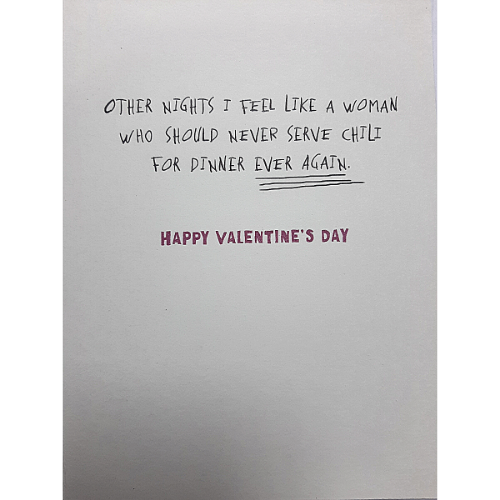 OTHER NIGHTS I FEEL LIKE A WOMAN
WHO SHOULD NEVER SERVE CHILI
FOR DINNER EVER AGAIN.
HAPPY VALENTINE'S DAY